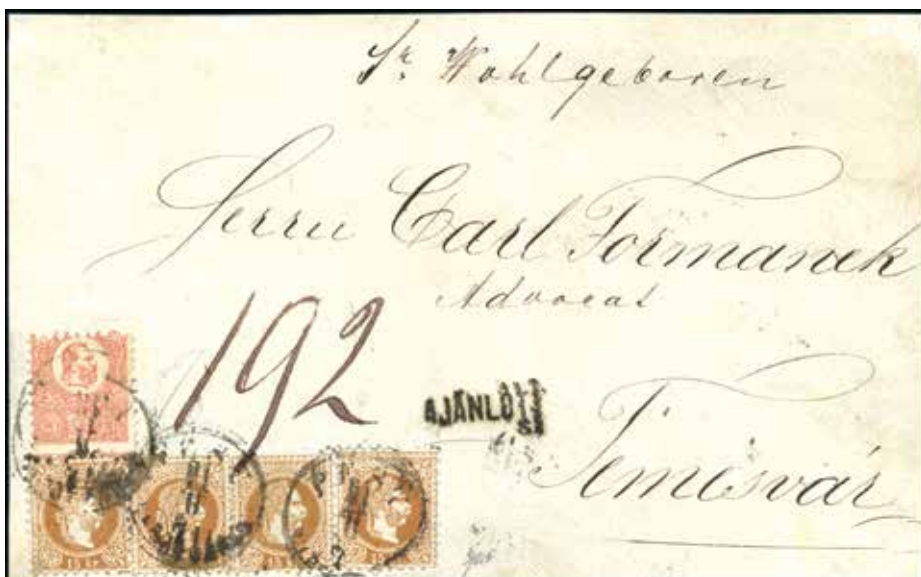 Sr. Wohlgeboren
Herrn Carl Formanek
Advocat
192
AJÁNLOTT
Temesvár
15 kr